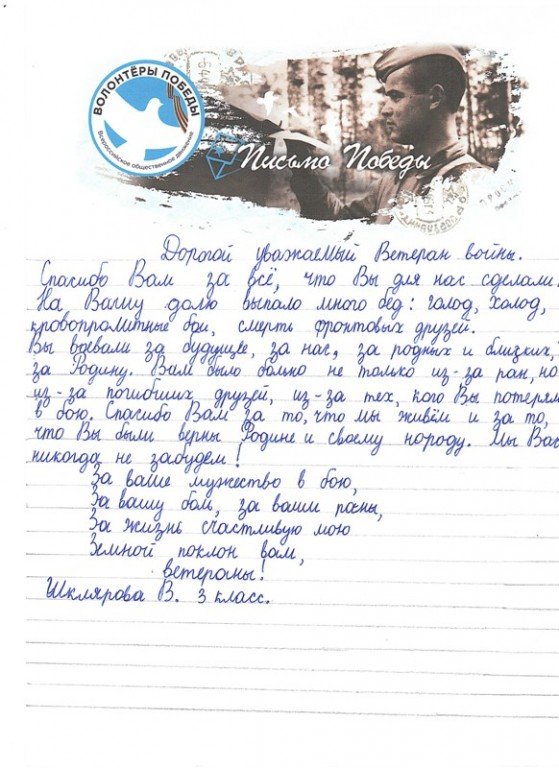 ВОЛОНТЁРЫ ПОБЕДЫ
Всероссийское общественное движение
Письмо Победы
Дорогой уважаемый Ветеран войны.
Спасибо Вам за всё, что Вы для нас сделали.
На Вашу долю выпало много бед: голод, холод,
кровопролитные бои, смерть фронтовых друзей.
Вы воевали за будущее, за нас, за родных и близких,
за Родину. Вам было больно не только из-за ран, но
из-за погибших друзей, из-за тех, кого Вы потерял
в бою. Спасибо Вам за то, что мы живём и за то,
что Вы были верны Родине и своему народу. Мы Вас
никогда не забудем!
За ваше мужество в бою,
За вашу боль, за ваши раны,
За жизнь счастливую мою
Земной поклон вам,
ветераны!
Шклярова В. 3 класс.